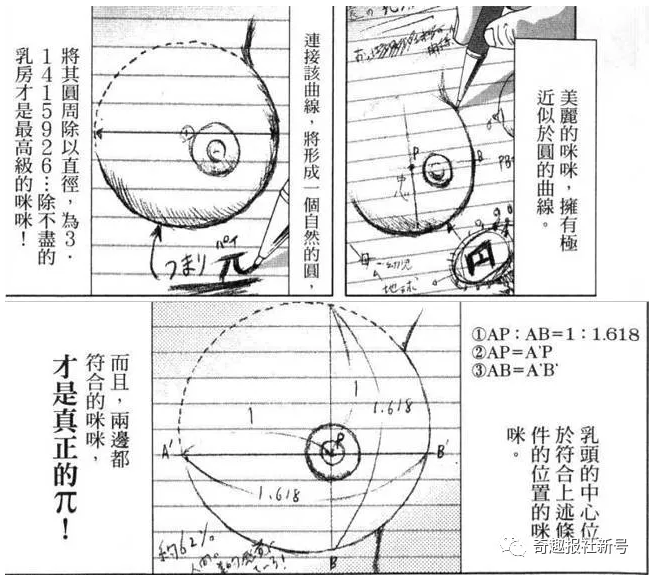 美麗的咪咪，擁有極
近似於圓的曲線。
P
B
円
地球
連接該曲線，將形成一個自然的圓，
將其圓周除以直徑，為3．
1415926…除不盡的
乳房才是最高級的咪咪！
つまり
パイ
π
①AP：AB=1：1.618
②AP=A'P
③AB=A'B'
乳頭的中心位
於符合上述條
件的位置的咪
咪。
1
1
1.618
P
A'
B'
1.618
約62%
B
而且，兩邊都
符合的咪咪，
才是真正的π！
奇趣报社新号